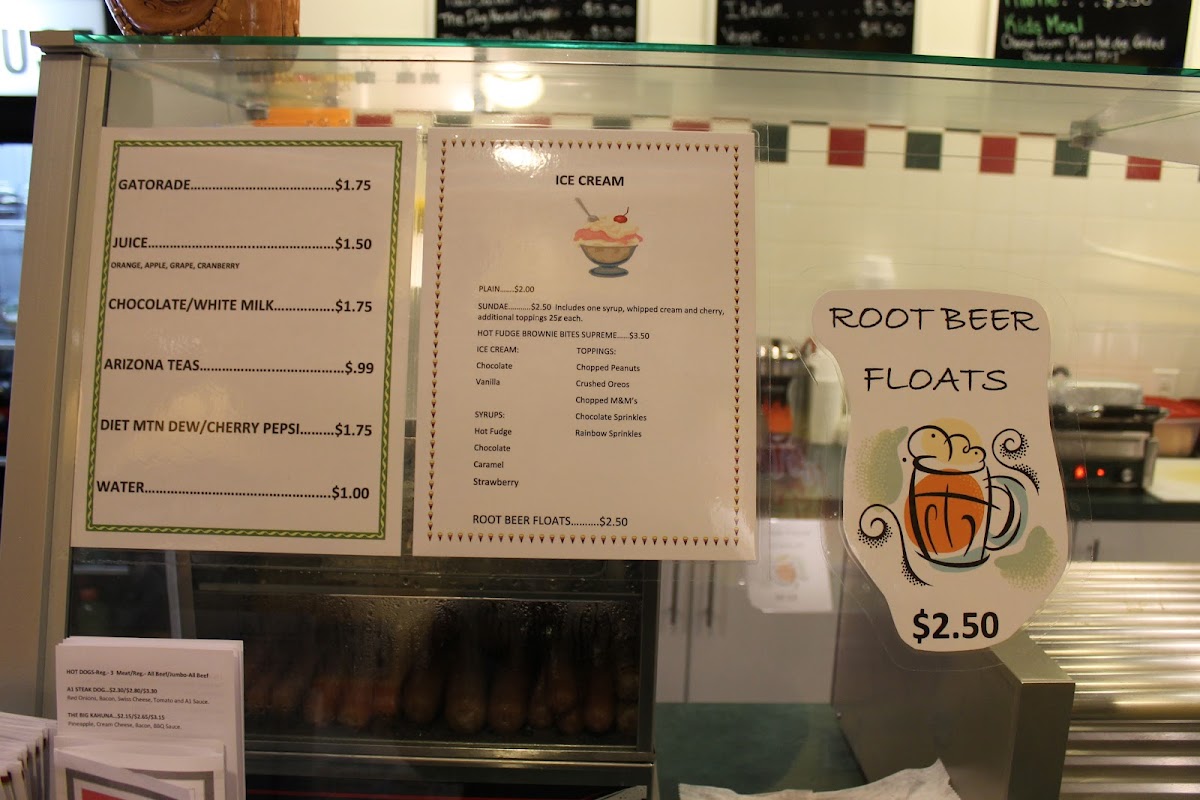 The Dog House
Italian.......$3.50
Veggie $4.50
Kids Meal
GATORADE......................................$1.75
JUICE..................................................$1.50
ORANGE, APPLE, GRAPE, CRANBERRY
CHOCOLATE/WHITE MILK...............$1.75
ARIZONA TEAS.......................................$.99
DIET MTN DEW/CHERRY PEPSI.........$1.75
WATER..................................................$1.00
ICE CREAM
PLAIN.......$2.00
SUNDAE...........$2.50 Includes one syrup, whipped cream and cherry,
additional toppings 25¢ each.
HOT FUDGE BROWNIE BITES SUPREME......$3.50
ICE CREAM:
Chocolate
Vanilla
SYRUPS:
Hot Fudge
Chocolate
Caramel
Strawberry
TOPPINGS:
Chopped Peanuts
Crushed Oreos
Chopped M&M's
Chocolate Sprinkles
Rainbow Sprinkles
ROOT BEER FLOATS..........$2.50
ROOT BEER
FLOATS
$2.50
HOT DOGS-Reg.- 3 Meat/Reg.- All Beef/Jumbo-All Beef
A1 STEAK DOG...$2.30/$2.80/$3.30
Red Onions, Bacon, Swiss Cheese, Tomato and A1 Sauce.
THE BIG KAHUNA...$2.15/$2.65/$3.15
Pineapple, Cream Cheese, Bacon, BBQ Sauce.